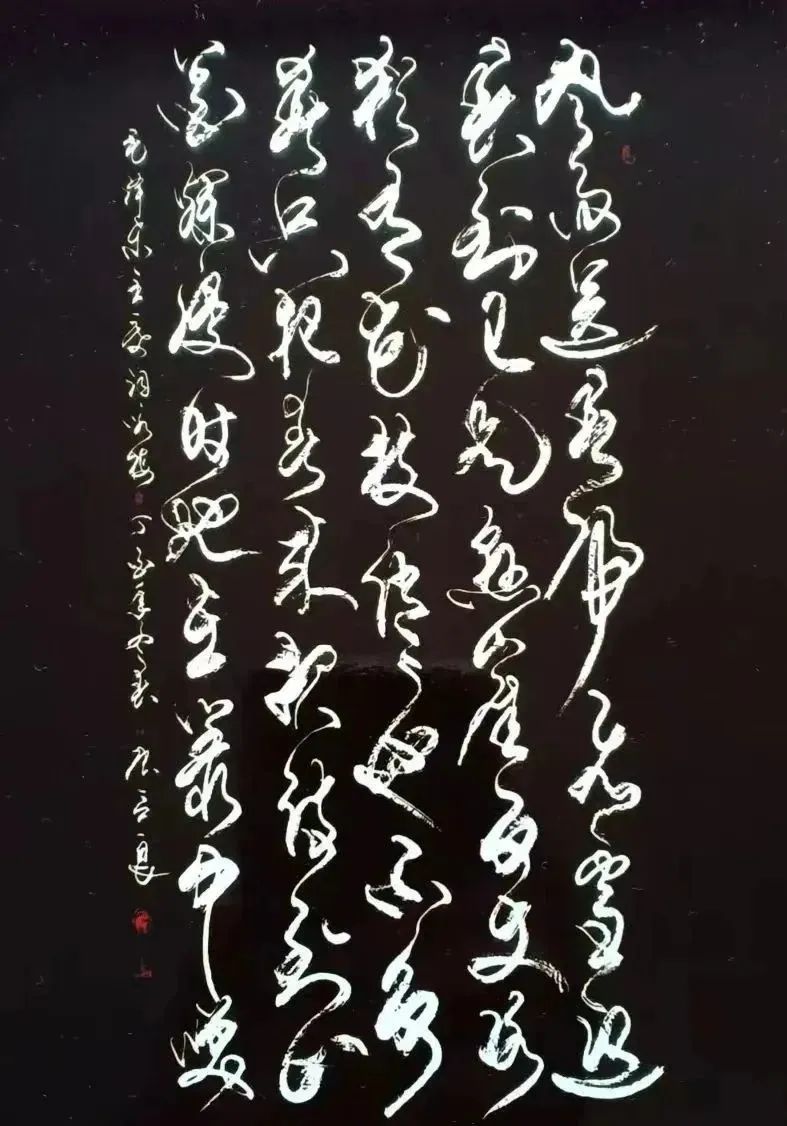 风雨送春归飞雪迎
春到已是悬崖百丈冰
犹有花枝俏〻也不争
春只把春来报待到山
花烂漫时她在丛中笑
毛泽东主席词咏梅 丁酉年